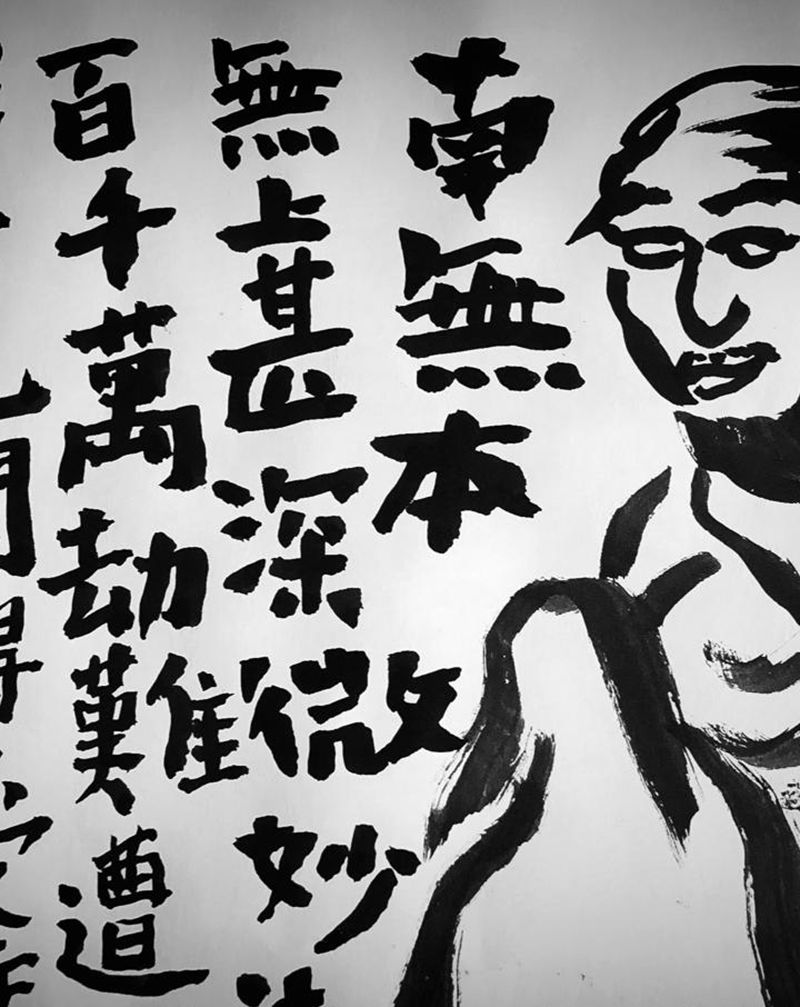 南無本
無上甚深微妙
百千萬劫難遭